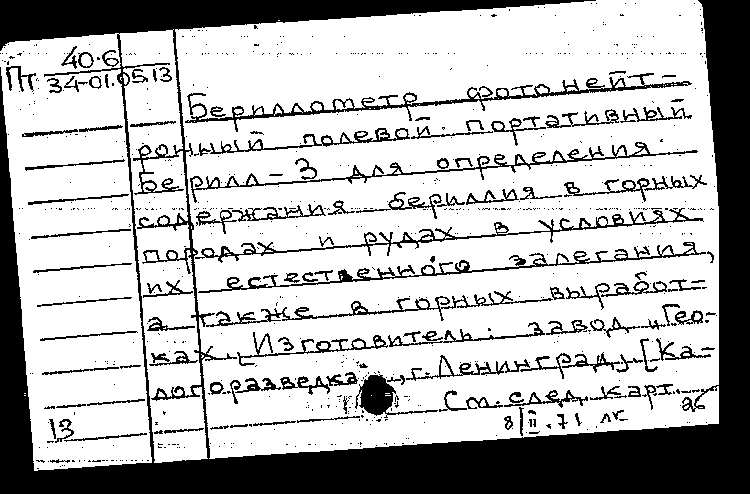 40-6
Пт 34-01.05.13
Бериллометр фотонейт-
ронный полевой портативный
Берилл-3 для определения
содержания бериллия в горных
породах и рудах в условиях
их естественного залегания,
а также в горных выработ-
ках. [Изготовитель: завод „Гео-
логоразведка", г. Ленинград]. [Ка-
См. след. карт.
13
8/II.71 лк 26